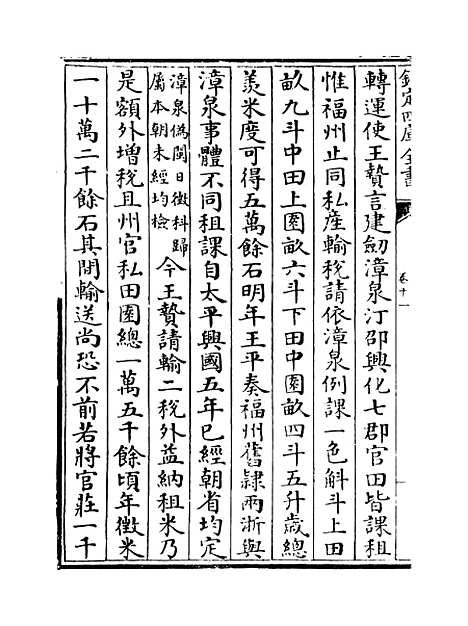 欽定四庫全書
卷十一
轉運使王贄言建劒漳泉汀邵興化七郡官田皆課租
惟福州止同私産輸稅請依漳泉例課一色斛斗上田
畝九斗中田上園畝六斗下田中園畝四斗五升歳總
羨米度可得五萬餘石明年王平奏福州舊隷兩浙與
漳泉事體不同租課自太平興國五年已經朝省均定
漳泉偽閩日徵科歸
屬本朝未經均檢
今王贄請輸二稅外益納租米乃
是額外增稅且州官私田園總一萬五千餘頃年徵米
一十萬二千餘石其閒輸送尚恐不前若將官莊一千